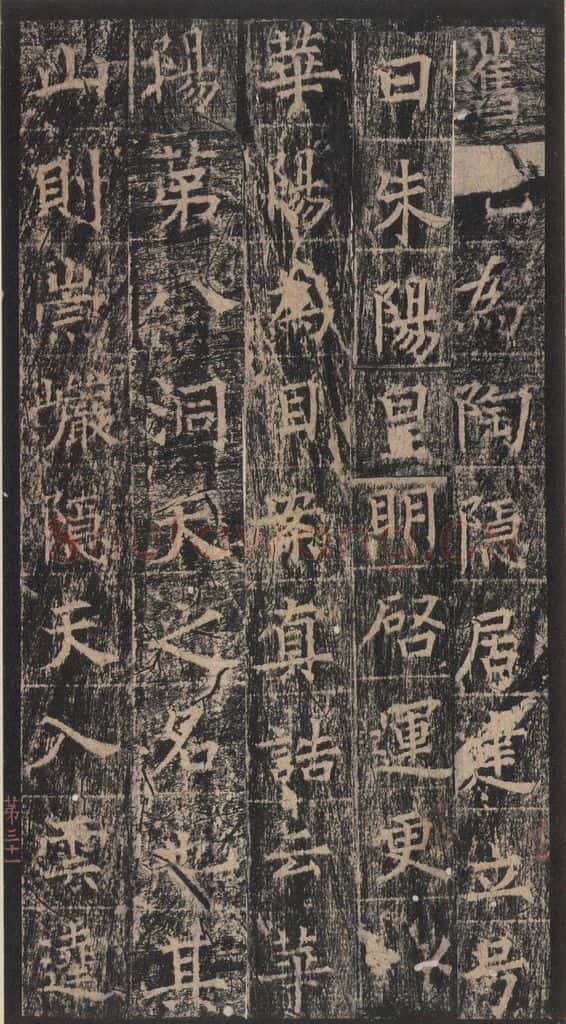 舊
為陶隱居建立号
曰朱陽皇明啓運更以
華陽為目案真誥云華
陽第八洞天之名也其
山則崇巘隱天入雲遠
第三十一
shufawang.cn